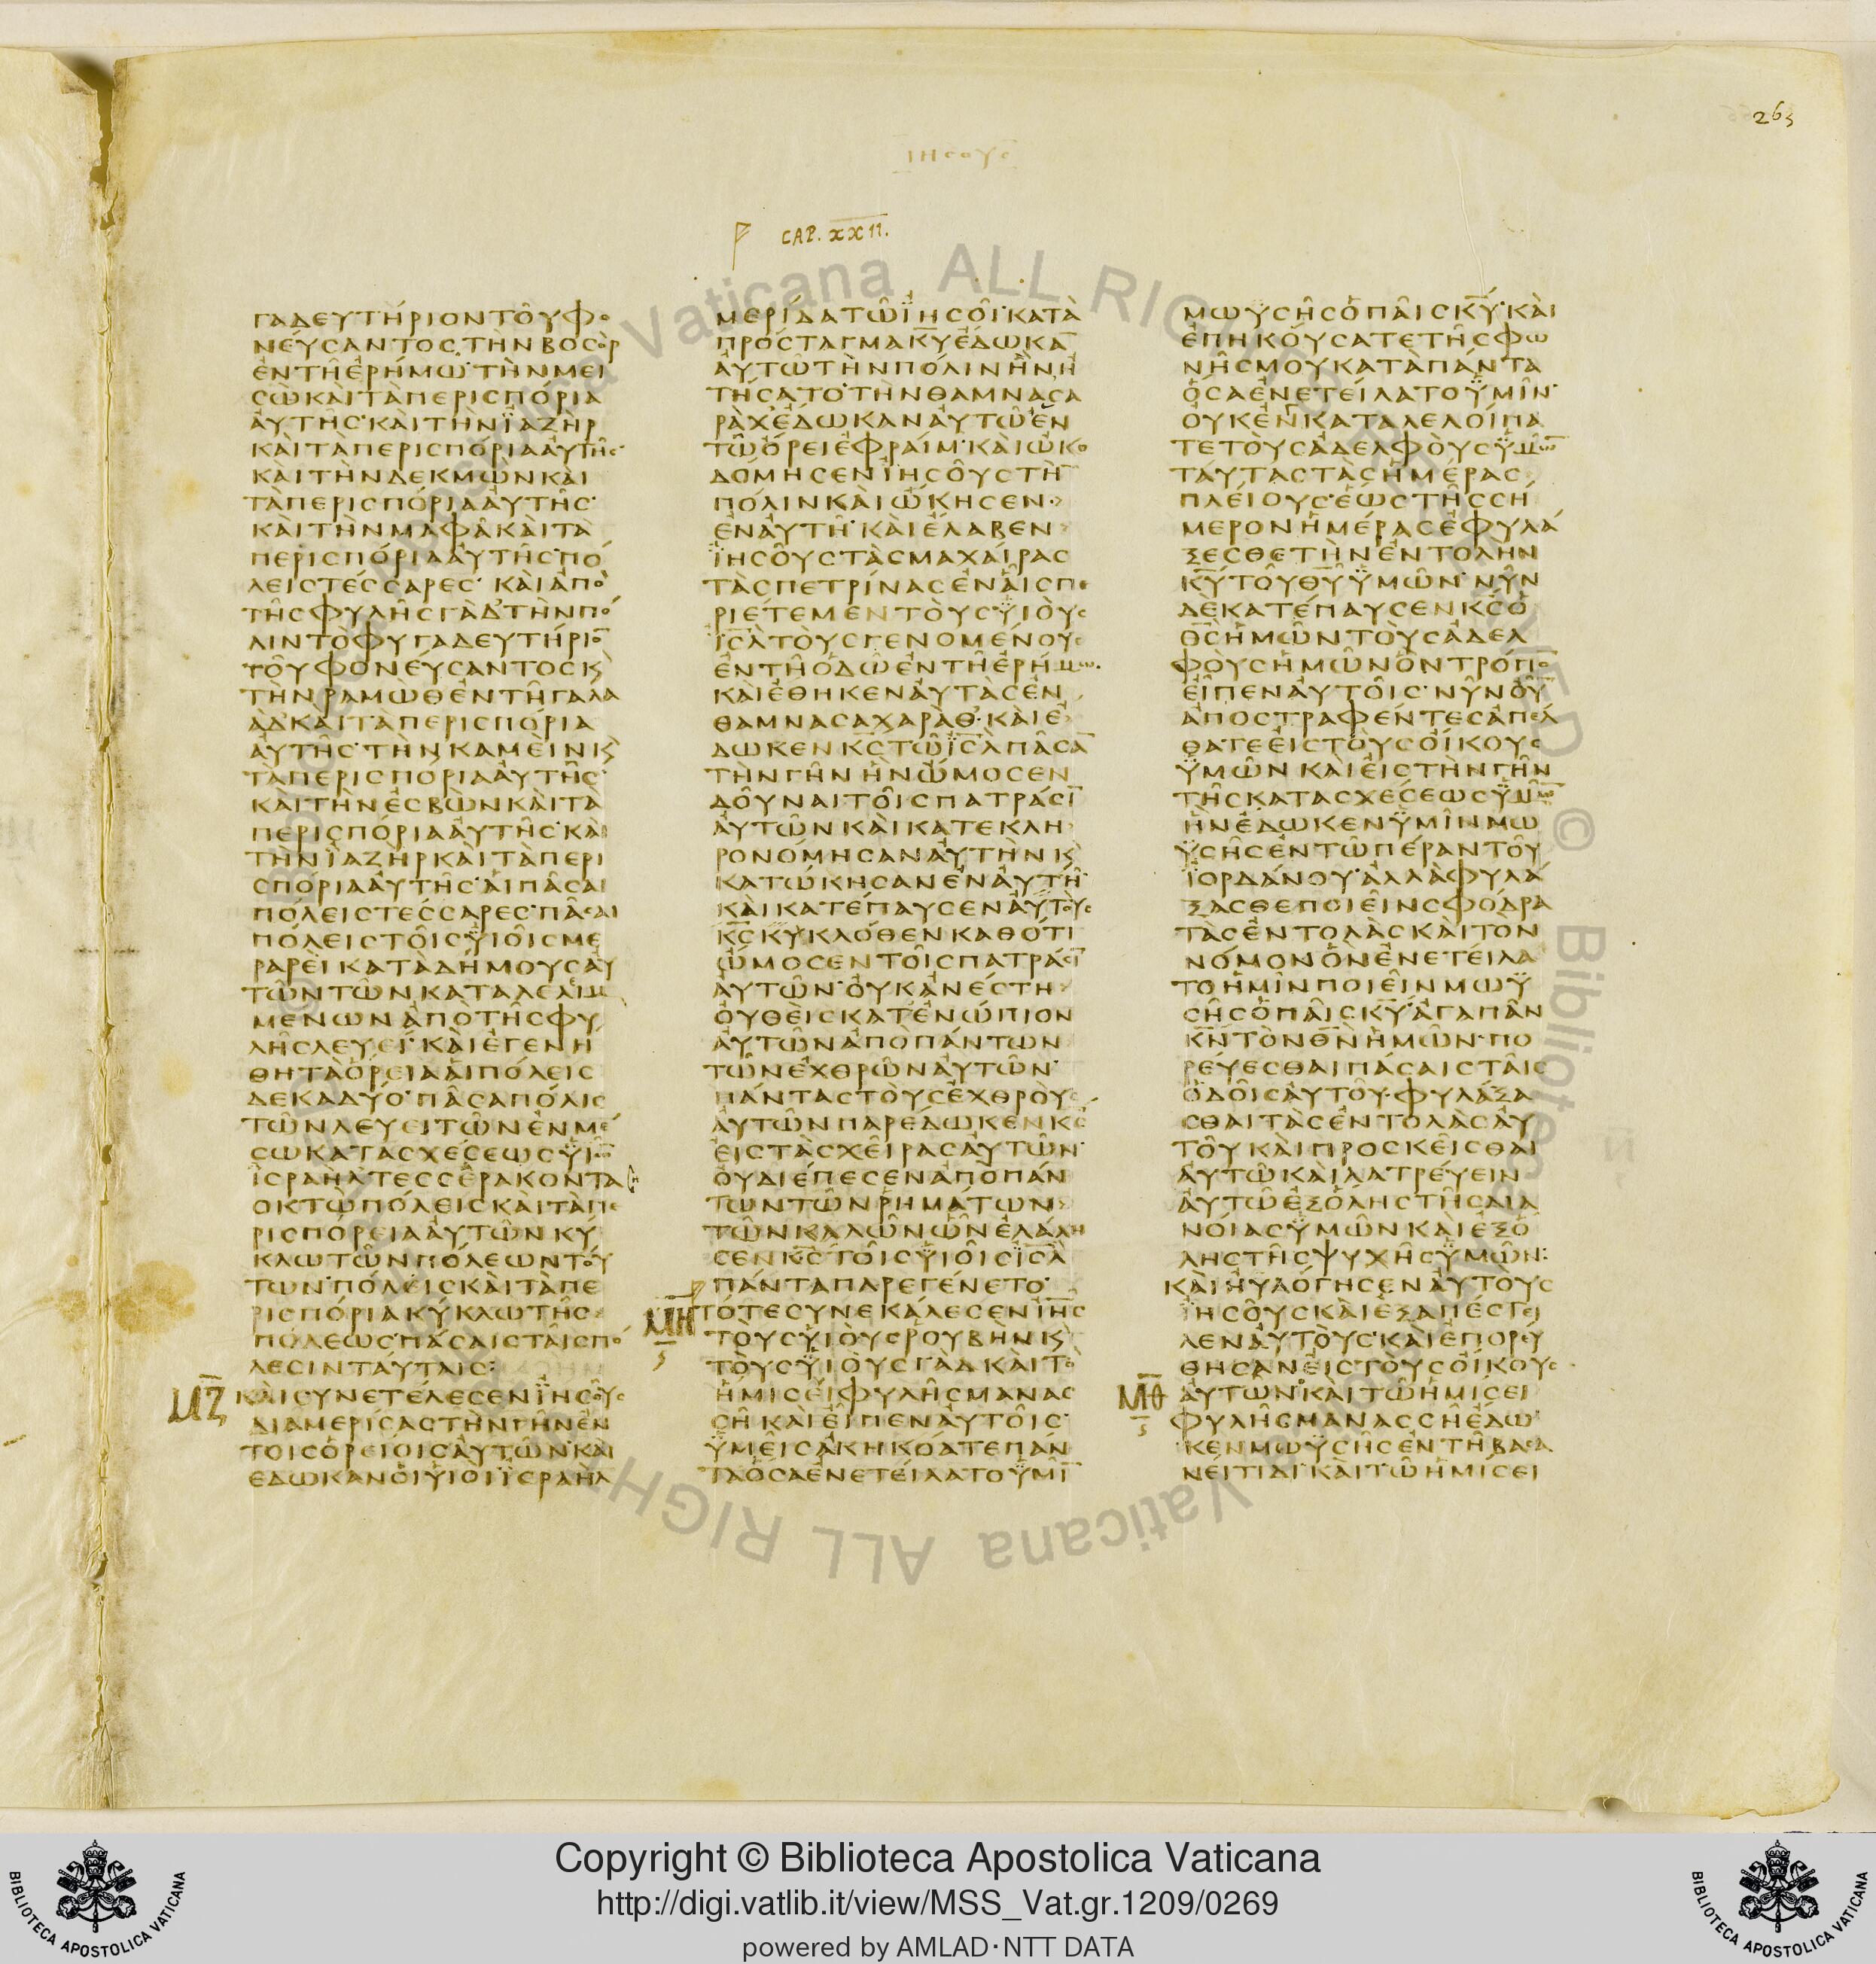 263
ΙΗϹΟΥϹ
CAP. XXII.
ΓΑΔΕΥΤΉΡΙΟΝΤΟΥ͂ΦΟ
ΝΕΎϹΑΝΤΟϹ ΤῊΝΒΟϹῸΡ
ἘΝΤΗἘΡΉΜΩ· ΤῊΝΜΕΙ
ϹῺΚΑῚΤᾺΠΕΡΙϹΠΌΡΙΑ
ἈΥΤΗ͂Ϲ· ΚΑῚΤῊΝΪΑΖῊΡ
ΚΑῚΤᾺΠΕΡΙϹΠΌΡΙΑἈΥΤΗ͂Ϲ·
ΚΑῚΤῊΝΔΕΚΜῺΝΚΑΙ
ΤᾺΠΕΡΙϹΠΌΡΙΑἈΥΤΗ͂Ϲ·
ΚΑῚΤῊΝΜΑΦᾺΚΑῚΤᾺ
ΠΕΡΙϹΠΌΡΙΑἈΥΤΗ͂Ϲ·ΠΌ
ΛΕΙϹΤΈϹϹΑΡΕϹ· ΚΑῚἈΠῸ
ΤΗ͂ϹΦΥΛΗ͂ϹΓᾺΔ·ΤῊΝΠΌ
ΛΙΝΤῸΦΥΓΑΔΕΥΤΉΡΙΟ̅
ΤΟΥ͂ΦΟΝΕΎϹΑΝΤΟϹΚϏ
ΤῊΝΡΑΜῺΘἘΝΤΗ͂ΓΑΛΑ
ᾺΔ·ΚΑῚΤᾺΠΕΡΙϹΠΌΡΙΑ
ἈΥΤΗ͂Ϲ·ΤῊΝΚΑΜΕῚΝΚϏ
ΤᾺΠΕΡΙϹΠΌΡΙΑἈΥΤΗ͂Ϲ·
ΚΑῚΤῊΝἘϹΒῺΝΚΑῚΤᾺ
ΠΕΡΙϹΠΌΡΙΑἈΥΤΗ͂Ϲ·ΚΑῚ
ΤῊΝΪΑΖῊΡΚΑῚΤᾺΠΕΡΙ
ϹΠΌΡΙΑἈΥΤΗ͂Ϲ·ἉΙΠΑ͂ϹΑΙ
ΠΌΛΕΙϹΤΈϹϹΑΡΕϹ·ΠΑ͂ϹΑΙ
ΠΌΛΕΙϹΤΟΙ͂ϹΫΙΟΙ͂ϹΜΕ
ΡΑΡΕῚΚΑΤᾺΔΉΜΟΥϹἈΥ
ΤΩ͂ΝΤΩ͂ΝΚΑΤΑΛΕΛΙΜ
ΜΈΝΩΝἈΠῸΤΗ͂ϹΦΥ
ΛΗ͂ϹΛΕΥΕΊ· ΚΑῚἘΓΕΝΗ
ΘΗΤᾺὍΡΕΙΑἉΙΠΌΛΕΙϹ
ΔΕΚΑΔΎΟ·ΠΑ͂ϹΑΠΌΛΙϹ
ΤΩ͂ΝΛΕΥΕΙΤΩ͂ΝἘΝΜΈ
ϹΩΚΑΤΑϹΧΈϹΕΩϹΫΙΩ̅
ΪϹΡΑῊΛΤΕϹϹΕΡΆΚΟΝΤΑ
ΟΚΤῺΠΌΛΕΙϹΚΑῚΤᾺΠΕ
ΡΙϹΠΌΡΕΙΑἈΥΤΩ͂ΝΚΎ
ΚΛΩΤΩ͂ΝΠΌΛΕΩΝΤΟΎ
ΤΩΝ·ΠΌΛΕΙϹΚΑῚΤᾺΠΕ
ΡΙϹΠΌΡΙΑΚΎΚΛΩΤΗ͂Ϲ
ΠΌΛΕΩϹ·ΠΆϹΑΙϹΤΑΙ͂ϹΠΌ
ΛΕϹΙΝΤΑΎΤΑΙϹ:
ΜΖ
ΚΑῚϹΥΝΕΤΈΛΕϹΕΝΪΗϹΟΥ͂Ϲ
ΔΙΑΜΕΡΊϹΑϹΤῊΝΓΗ͂ΝἘΝ
ΤΟΙϹὉΡΕΊΟΙϹἈΥΤΩ͂Ν·ΚΑῚ
ἘΔΩΚΑΝὉΙΫΙΟῚΪϹΡΑῊΛ
ΜΕΡΊΔΑΤΩ͂ΪΗϹΟΙ͂·ΚΑΤᾺ
ΠΡΌϹΤΑΓΜΑΚ̅Υ̅ἜΔΩΚΑ̅
ἈΥΤΩ͂ΤῊΝΠΌΛΙΝἫΝΗ
ΤΉϹΑΤΟ·ΤῊΝΘΑΜΝΑϹΑ
ΡᾺΧ·ἜΔΩΚΑΝἈΥΤΩ͂ἘΝ
ΤΩ͂ὌΡΕΙἘΦΡΑΊΜ·ΚΑῚΩΚΟ
ΔΌΜΗϹΕΝΪΗϹΟΥ͂ϹΤῊ̅
ΠΌΛΙΝΚΑῚὬΚΗϹΕΝ·
ἘΝἈΥΤΗ͂·ΚΑῚἜΛΑΒΕΝ
ΪΗϹΟΥ͂ϹΤᾺϹΜΑΧΑΊΡΑϹ
ΤᾺϹΠΕΤΡΊΝΑϹἘΝΑΙ͂ϹΠΕ
ΡΙΈΤΕΜΕΝΤΟῪϹΫΙΟῪϹ
Ι̅Ϲ̅Λ̅ΤΟῪϹΓΕΝΟΜΈΝΟΥϹ
ἘΝΤΗ͂ὉΔΩ͂ἘΝΤΗ͂ἘΡΉΜΩ·
ΚΑῚἜΘΗΚΕΝἈΥΤᾺϹἘΝ
ΘΑΜΝΑϹΑΧΑΡᾺΘ·ΚΑῚἜ
ΔΩΚΕΝΚ̅Ϲ̅ΤΩ͂Ι̅Ϲ̅Λ̅ΠΑ͂ϹΑ̅
ΤῊΝΓΗ͂ΝἫΝὬΜΟϹΕΝ
ΔΟΥ͂ΝΑΙΤΟΙ͂ϹΠΑΤΡΆϹΙ̅
ἈΥΤΩ͂ΝΚΑῚΚΑΤΕΚΛΗ
ΡΟΝΌΜΗϹΑΝἈΥΤῊΝΚϏ
ΚΑΤΏΚΗϹΑΝἘΝἈΥΤΗ͂·
ΚΑῚΚΑΤΈΠΑΥϹΕΝἈΥΤΟῪϹ
Κ̅Ϲ̅ΚΥΚΛΌΘΕΝΚΑΘΌΤΙ
ὬΜΟϹΕΝΤΟΙ͂ϹΠΑΤΡΆϹΙ̅
ἈΥΤΩ͂Ν·ὈΥΚἈΝΈϹΤΗ
ὈΥΘΕῚϹΚΑΤΕΝΏΠΙΟΝ
ἈΥΤΩ͂ΝἈΠῸΠΆΝΤΩΝ
ΤΩ͂ΝἘΧΘΡΩ͂ΝἈΥΤΩ͂Ν·
ΠΆΝΤΑϹΤΟῪϹἘΧΘΡΟῪϹ
ἈΥΤΩ͂ΝΠΑΡΈΔΩΚΕΝΚ̅Ϲ̅
ἘΙϹΤᾺϹΧΕΙ͂ΡΑϹἈΥΤΩ͂Ν·
ὈΥΔΙΈΠΕϹΕΝἈΠῸΠΆΝ
ΤΩΝΤΩ͂ΝῬΗΜΆΤΩΝ
ΤΩ͂ΝΚΑΛΩ͂ΝὯΝἘΛΆΛΗ
ϹΕΝΚ̅Ϲ̅ΤΟΙ͂ϹΫΙΟΙ͂ϹΙ̅Ϲ̅Λ̅
ΠΆΝΤΑΠΑΡΕΓΈΝΕΤΟ·
ΜΗ
ΤΌΤΕϹΥΝΕΚΆΛΕϹΕΝΙΗϹ
ΤΟῪϹΫΙΟῪϹΡΟΥΒῊΝΚϏ
ΤΟῪϹΫΙΟῪϹΓᾺΔΚΑῚΤῸ
ἭΜΙϹΕΙΦΥΛΗ͂ϹΜΑΝΑϹ
ϹΗ͂ΚΑῚἘΙ͂ΠΕΝἈΥΤΟΙ͂Ϲ·
ΫΜΕΙ͂ϹἈΚΗΚΌΑΤΕΠΆΝ
ΤΑὍϹΑἘΝΕΤΕΊΛΑΤΟΫΜΙ̅
ΜΩΫϹΗ͂ϹὉΠΑΙ͂ϹΚ̅Υ̅·ΚΑῚ
ἘΠΗΚΟΎϹΑΤΕΤΗ͂ϹΦΩ
ΝΗ͂ϹΜΟΥΚΑΤᾺΠΆΝΤΑ
ὍϹΑἘΝΕΤΕΊΛΑΤΟΫΜΙ͂Ν·
ὈΥΚἘΝΚΑΤΑΛΕΛΟΊΠΑ
ΤΕΤΟῪϹἈΔΕΛΦΟῪϹΫΜΩ̅
ΤΑΎΤΑϹΤᾺϹἩΜΈΡΑϹ
ΠΛΕΊΟΥϹ·ἝΩϹΤΗ͂ϹϹΉ
ΜΕΡΟΝἩΜΈΡΑϹἘΦΥΛΆ
ΞΕϹΘΕΤῊΝἘΝΤΟΛΗΝ
Κ̅Υ̅ΤΟΥ͂Θ̅Υ̅ΫΜΩ͂Ν·ΝΥ͂Ν
ΔῈΚΑΤΈΠΑΥϹΕΝΚ̅Ϲ̅Ὁ
Θ̅Ϲ̅ἩΜΩ͂ΝΤΟῪϹἈΔΕΛ
ΦΟῪϹἩΜΩ͂ΝὋΝΤΡΌΠΟ̅
ἘΙ͂ΠΕΝἈΥΤΟΙ͂Ϲ·ΝΥ͂ΝΟΥ̅
ἈΠΟϹΤΡΑΦΈΝΤΕϹἈΠΈΛ
ΘΑΤΕἘΙϹΤΟῪϹὈΊΚΟΥϹ
ΫΜΩ͂ΝΚΑῚἘΙϹΤῊΝΓΗ͂Ν
ΤΗ͂ϹΚΑΤΑϹΧΈϹΕΩϹΫΜΩ̅
ἫΝἜΔΩΚΕΝΫΜΙ͂ΝΜΩ
ΫϹΗ͂ϹἘΝΤΩ͂ΠΈΡΑΝΤΟΥ͂
ΪΟΡΔΆΝΟΥ·ἈΛΛᾺΦΥΛΆ
ΞΑϹΘΕΠΟΙΕΙ͂ΝϹΦΌΔΡΑ
ΤᾺϹἘΝΤΟΛᾺϹΚΑῚΤΟΝ
ΝΌΜΟΝὋΝἘΝΕΤΕΊΛΑ
ΤΟἩΜΙ͂ΝΠΟΙΕΙ͂ΝΜΩΫ
ϹΗ͂ϹὉΠΑΙ͂ϹΚ̅Υ̅·ἈΓΑΠΑ͂Ν
Κ̅Ν̅ΤῸΝΘ̅Ν̅ἩΜΩ͂Ν·ΠΟ
ΡΕΎΕϹΘΑΙΠΆϹΑΙϹΤΑΙ͂Ϲ
ὉΔΟΙ͂ϹἈΥΤΟΥ͂·ΦΥΛΆΞΑ
ϹΘΑΙΤᾺϹἘΝΤΟΛᾺϹἈΥ
ΤΟΥ͂ΚΑῚΠΡΟϹΚΕΙ͂ϹΘΑΙ
ἈΥΤΩ͂ΚΑῚΛΑΤΡΕΎΕΙΝ
ἈΥΤΩ͂ἘΞὍΛΗϹΤΗ͂ϹΔΙΑ
ΝΟΊΑϹΫΜΩ͂ΝΚΑῚἘΞὍ
ΛΗϹΤΗ͂ϹΨΥΧΗ͂ϹΫΜΩ͂Ν:
ΚΑῚΗΥΛΌΓΗϹΕΝἈΥΤΟῪϹ
ΪΗϹΟΥ͂ϹΚΑῚἘΞΑΠΈϹΤΕΙ
ΛΕΝἈΥΤΟῪϹ·ΚΑῚἘΠΟΡΕΎ
ΘΗϹΑΝἘΙϹΤΟῪϹὈΊΚΟΥϹ
ΜΘ
ἈΥΤΩ͂Ν·ΚΑῚΤΩ͂ἩΜΊϹΕΙ
ΦΥΛΗ͂ϹΜΑΝΑϹϹΗ͂ἜΔΩ
ΚΕΝΜΩΫϹΗ͂ϹἘΝΤΗ͂ΒΑϹΑ
ΝΕΊΤΙΔΙ·ΚΑῚΤΩ͂ἩΜΊϹΕΙ
Copyright © Biblioteca Apostolica Vaticana
http://digi.vatlib.it/view/MSS_Vat.gr.1209/0269
powered by AMLAD·NTT DATA
BIBLIOTECA APOSTOLICA VATICANA
BIBLIOTECA APOSTOLICA VATICANA